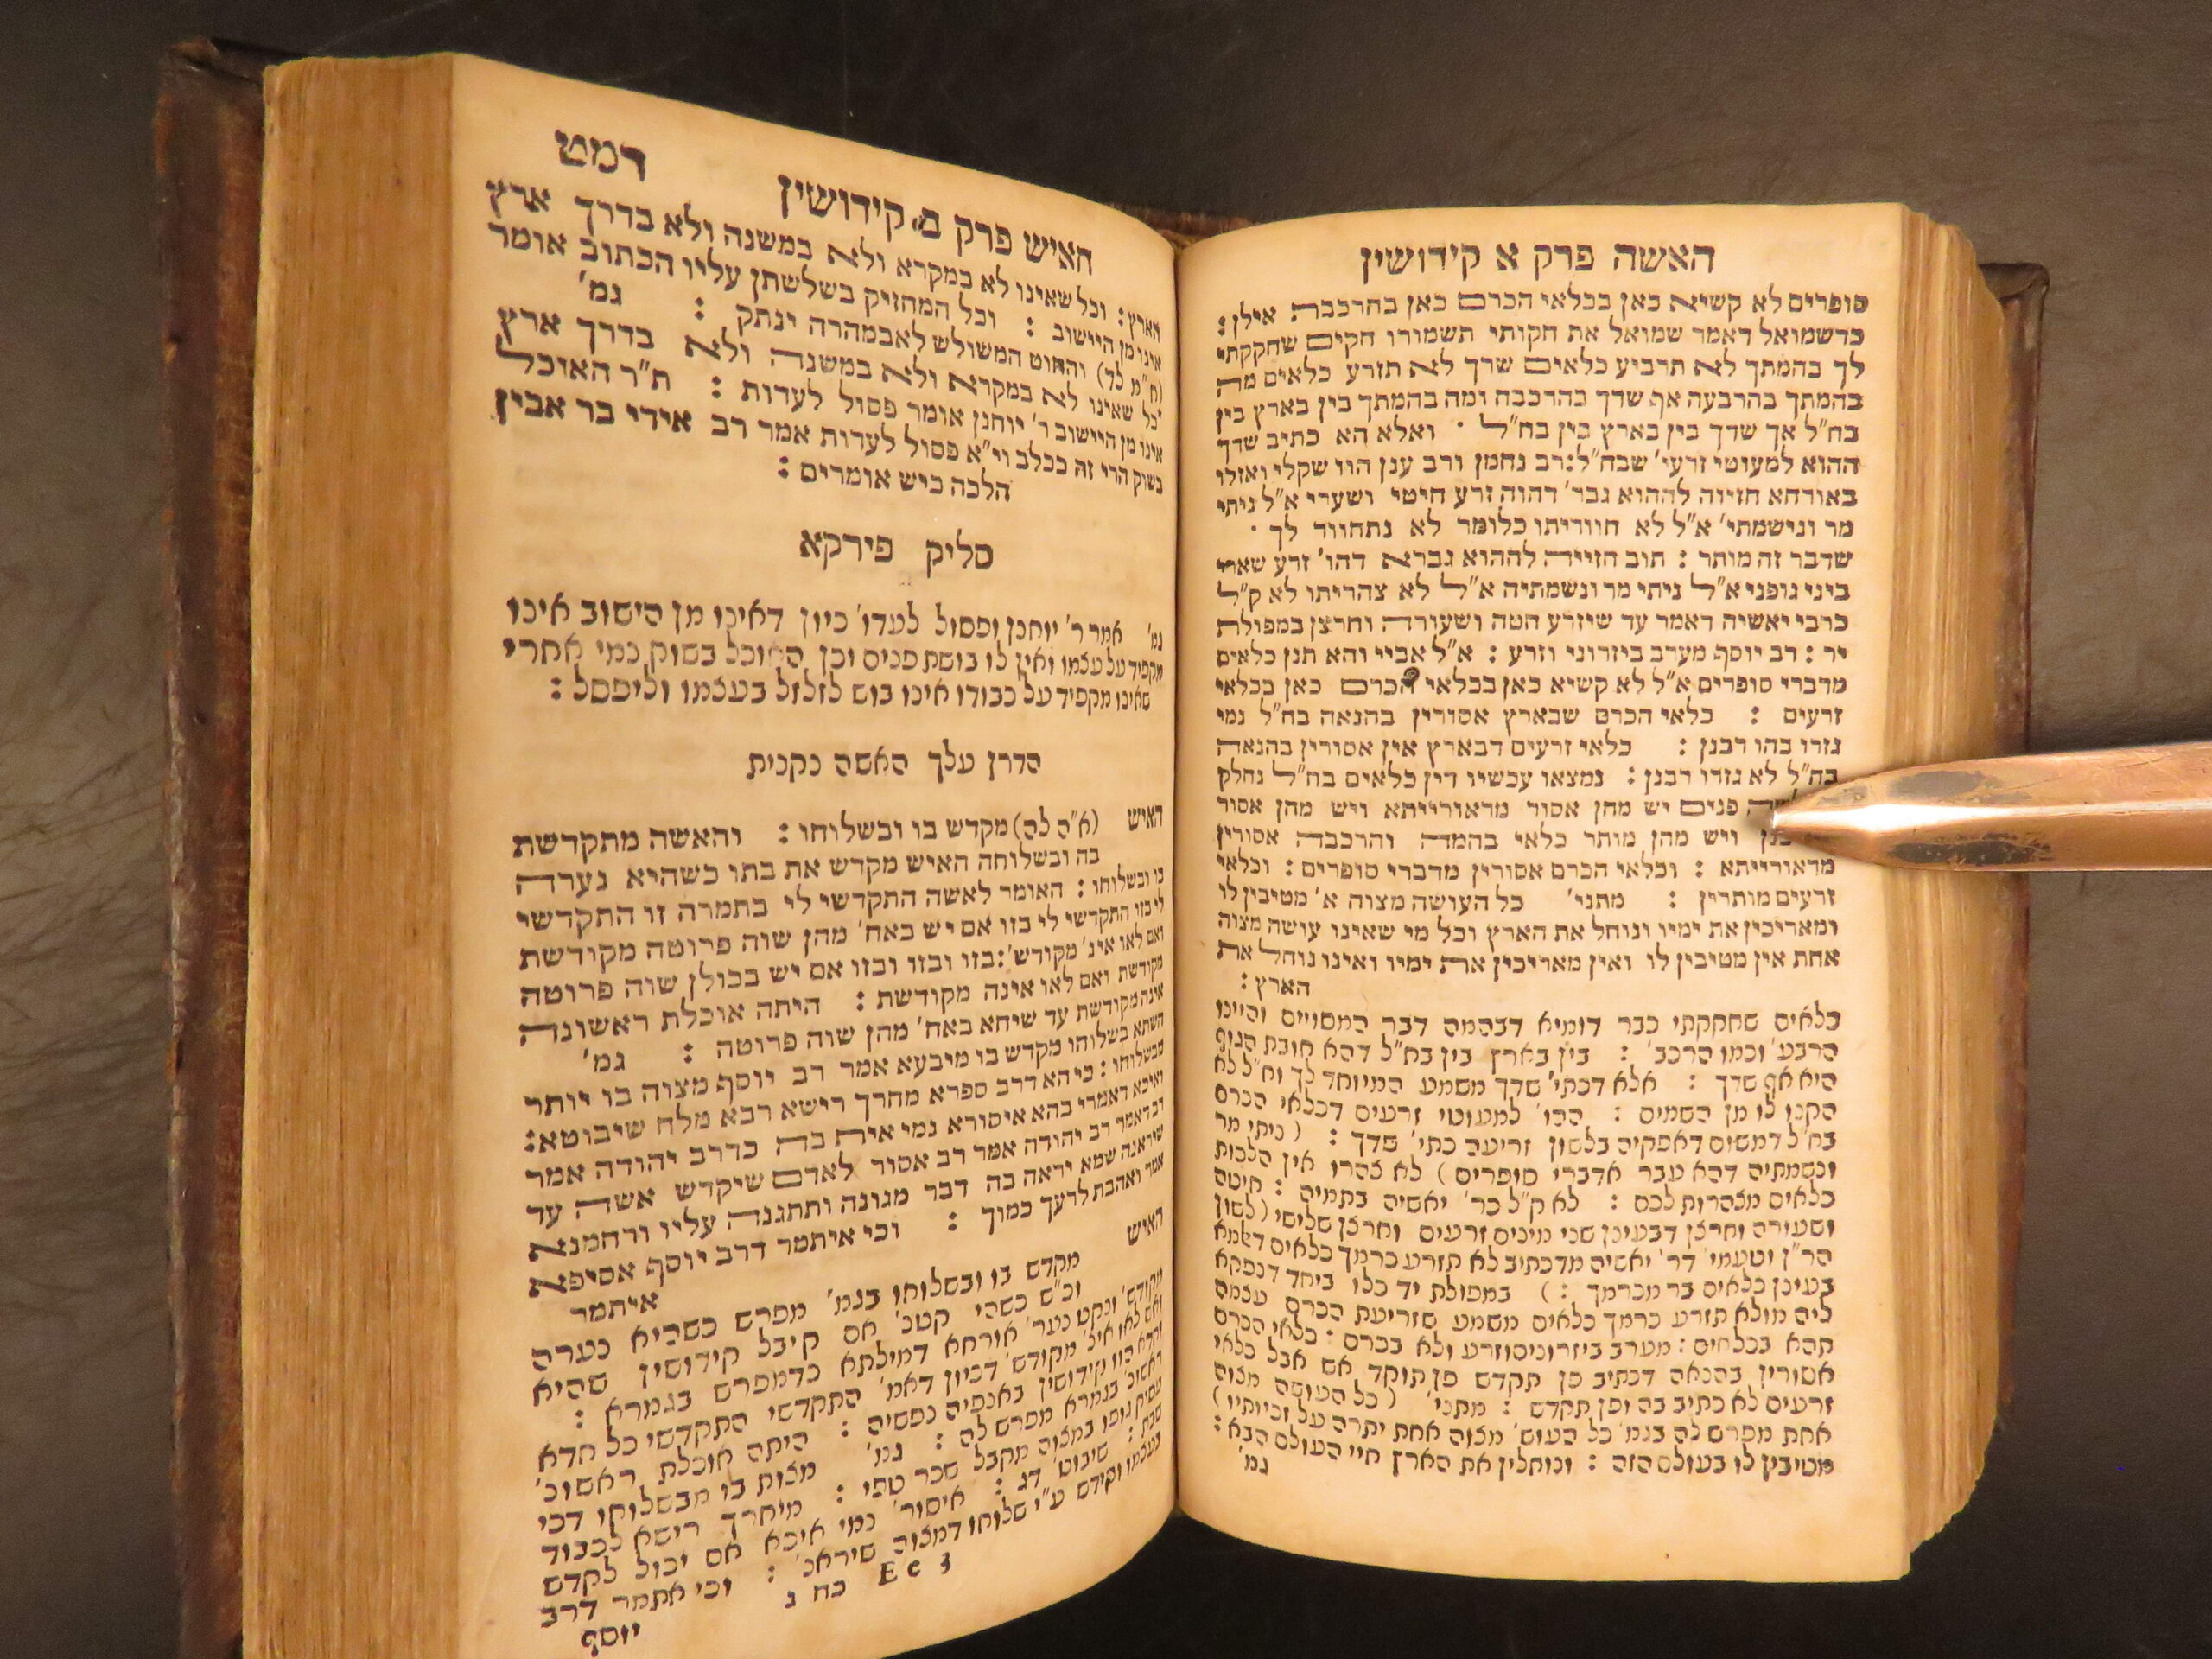 האשה פרק א קידושין
סופרים לא קשיא כאן בכלאי הכרם כאן בהרכבת אילן :
כדשמואל דאמר שמואל את חקותי תשמורו חקים שחקקתי
לך בהמתך לא תרביע כלאים שדך לא תזרע כלאים מה
בהמתך בהרבעה אף שדך בהרכבה ומה בהמתך בין בארץ בין
בח"ל אף שדך בין בארץ בין בח"ל · ואלא הא כתיב שדך
ההוא למעוטי זרעי' שבח"ל: רב נחמן ורב ענן הוו שקלי ואזלו
באורחא חזיוה לההוא גבר' דהוה זרע חיטי ושערי א"ל ניתי
מר ונישמתי' א"ל לא חווריתו כלומר לא נתחוור לך ·
שדבר זה מותר : תוב חזייה לההוא גברא דהו' זרע שארי
ביני גופני א"ל ניתי מר ונשמתיה א"ל לא צהריתו לא ק"ל
כרבי יאשיה דאמר עד שיזרע חטה ושעורה וחרצן במפולת
יד : רב יוסף מערב ביזרוני וזרע : א"ל אביי והא תנן כלאים
מדברי סופרים א"ל לא קשיא כאן בכלאי הכרם כאן בכלאי
זרעים : כלאי הכרם שבארץ אסורין בהנאה בח"ל נמי
גזרו בהו רבנן : כלאי זרעים דבארץ אין אסורין בהנאה
בח"ל לא גזרו רבנן : נמצאו עכשיו דין כלאים בח"ל נחלק
פנים יש מהן אסור מדאורייתא ויש מהן אסור
ויש מהן מותר כלאי בהמה והרכבה אסורין
מדאורייתא : וכלאי הכרם אסורין מדברי סופרים : וכלאי
זרעים מותרין : מתני' כל העושה מצוה א' מטיבין לו
ומאריכין את ימיו ונוחל את הארץ וכל מי שאינו עושה מצוה
אחת אין מטיבין לו ואין מאריכין את ימיו ואינו נוחל את
הארץ :
כלאים שחקקתי כבר דומיא דבהמה דבר המסויים והיינו
הרבע' וכמו הרכב' : בין בארץ בין בח"ל דהא חובת הגוף
היא אף שדך : אלא דכתי' שדך משמע המיוחד לך וח"ל לא
הקנו לו מן השמים : ההו' למעוטי זרעים דכלאי הכרם
בח"ל דמשום דאפקיה בלשון זריעה כתי' שדך : (ניתי מר
ונשמתיה דהא עבר אדברי סופרים) לא צהרו אין הלכות
כלאים מצהרות לכם : לא ק"ל כר' יאשיה בתמיה : חיטה
ושעורה וחרצן דבעינן שני מינים זרעים וחרצן שלישי (לשון
הר"ן וטעמי' דר' יאשיה מדכתיב לא תזרע כרמך כלאים דאלמא
בעינן כלאים בר מכרמך : ) במפולת יד כלו' ביחד דנפקא
ליה מולא תזרע כרמך כלאים משמע שזריעת הכרם עצמה
תהא בכלאים : מערב ביזרוניס וזרע ולא בכרם : כלאי הכרם
אסורין בהנאה דכתיב פן תקדש פן תוקד אש אבל כלאי
זרעים לא כתיב בה ופן תקדש : מתני' (כל העושה מצוה
אחת מפרש לה בגמ' כל העוש' מצוה אחת יתרה על זכיותיו)
מטיבין לו בעולם הזה : ונוחלין את הארץ חיי העולם הבא :
גמ'
האיש פרק ב קידושין רמט
הארץ : וכל שאינו לא במקרא ולא במשנה ולא בדרך ארץ
אינו מן היישוב : וכל המחזיק בשלשתן עליו הכתוב אומר
והחוט המשולש לא במהרה ינתק : גמ'
כל שאינו לא במקרא ולא במשנה ולא בדרך ארץ
אינו מן היישוב ר' יוחנן אומר פסול לעדות : ת"ר האוכל
בשוק הרי זה ככלב וי"א פסול לעדות אמר רב אידי בר אבין
הלכה כיש אומרים :
סליק פירקא
גמ' אמר ר' יוחנן ופסול לעדו' כיון דאינו מן הישוב אינו
מקפיד על עצמו ואין לו בושת פנים וכן האוכל בשוק נמי אחרי
שאינו מקפיד על כבודו אינו בוש לזלזל בעצמו וליפסל :
הדרן עלך האשה נקנית
האיש מקדש בו ובשלוחו : והאשה מתקדשת
בה ובשלוחה האיש מקדש את בתו כשהיא נערה
בו ובשלוחו : האומר לאשה התקדשי לי בתמרה זו התקדשי
לי בזו התקדשי לי בזו אם יש באח' מהן שוה פרוטה מקודשת
ואם לאו אינ' מקודש': בזו ובזו ובזו אם יש בכולן שוה פרוטה
מקודשת ואם לאו אינה מקודשת : היתה אוכלת ראשונה
אינה מקודשת עד שיהא באח' מהן שוה פרוטה : גמ'
השתא בשלוחו מקדש בו מיבעא אמר רב יוסף מצוה בו יותר
מבשלוחו : כי הא דרב ספרא מחרך רישא רבא מלח שיבוטא :
ואיכא דאמרי בהא איסורא נמי אית בה כדרב יהודה אמר
רב דאמר רב יהודה אמר רב אסור לאדם שיקדש אשה עד
שיראנה שמא יראה בה דבר מגונה ותתגנה עליו ורחמנא
אמר ואהבת לרעך כמוך : וכי איתמר דרב יוסף אסיפא
איתמר
האיש מקדש בו ובשלוחו בגמ' מפרש כשהיא נערה
וכ"ש כשהי' קטנ' אם קיבל קידושין שהיא
מקודש' ונקט נער' אורחא דמילתא כדמפרש בגמרא :
ואם לאו אינ' מקודש' דכיון דאמ' התקדשי התקדשי כל חדא
וחדא הוו קידושין באנפיה נפשיה : היתה אוכלת ראשונ'
ראשונ' בגמרא מפרש לה : גמ' מצות בו מבשלוחו דכי
עסיק גופו במצוה מקבל שכר טפי : מיחרך רישא לכבוד
שבת : שיבוט' דג : איסור' נמי איכא אם יכול לקדש
בעצמו וקידש ע"י שלוחו דמצוה שיראנ' : וכי אתמר דרב
Ee 3 כח ג יוסף